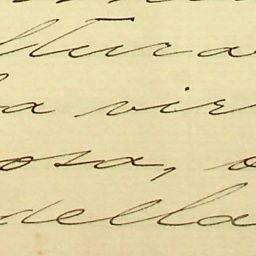 ltura
a vir
osa, o
della